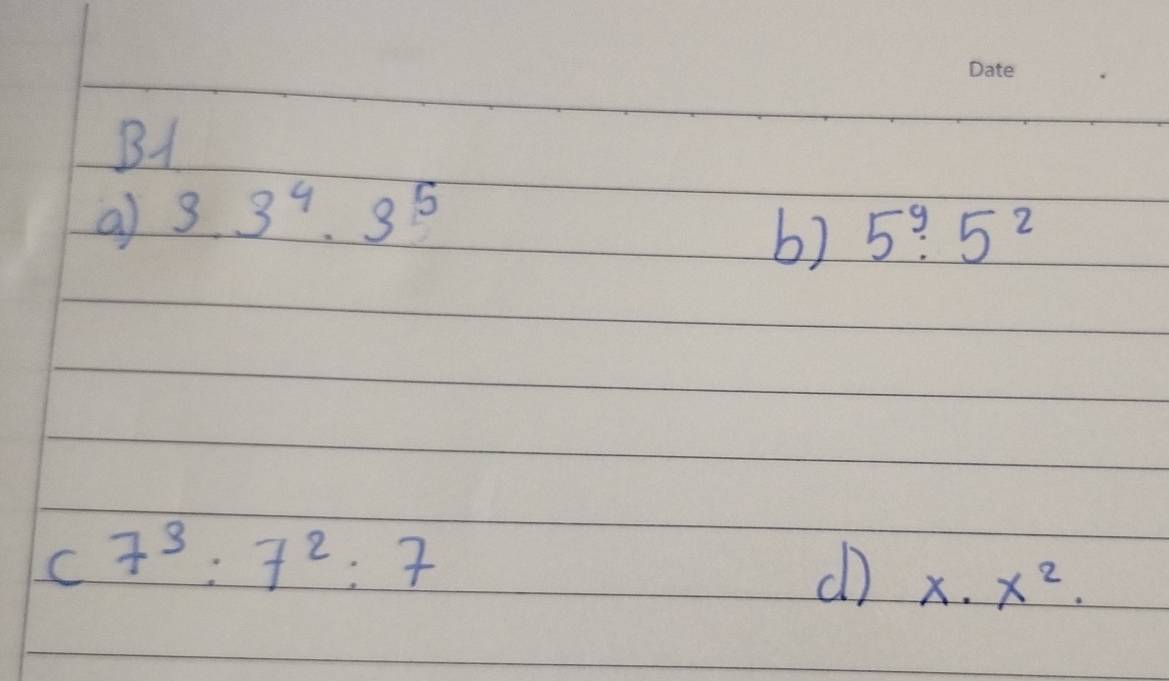 Date
B1
a) 3.3⁴.3⁵
b) 5⁹:5²
c 7³:7²:7
d) x.x².